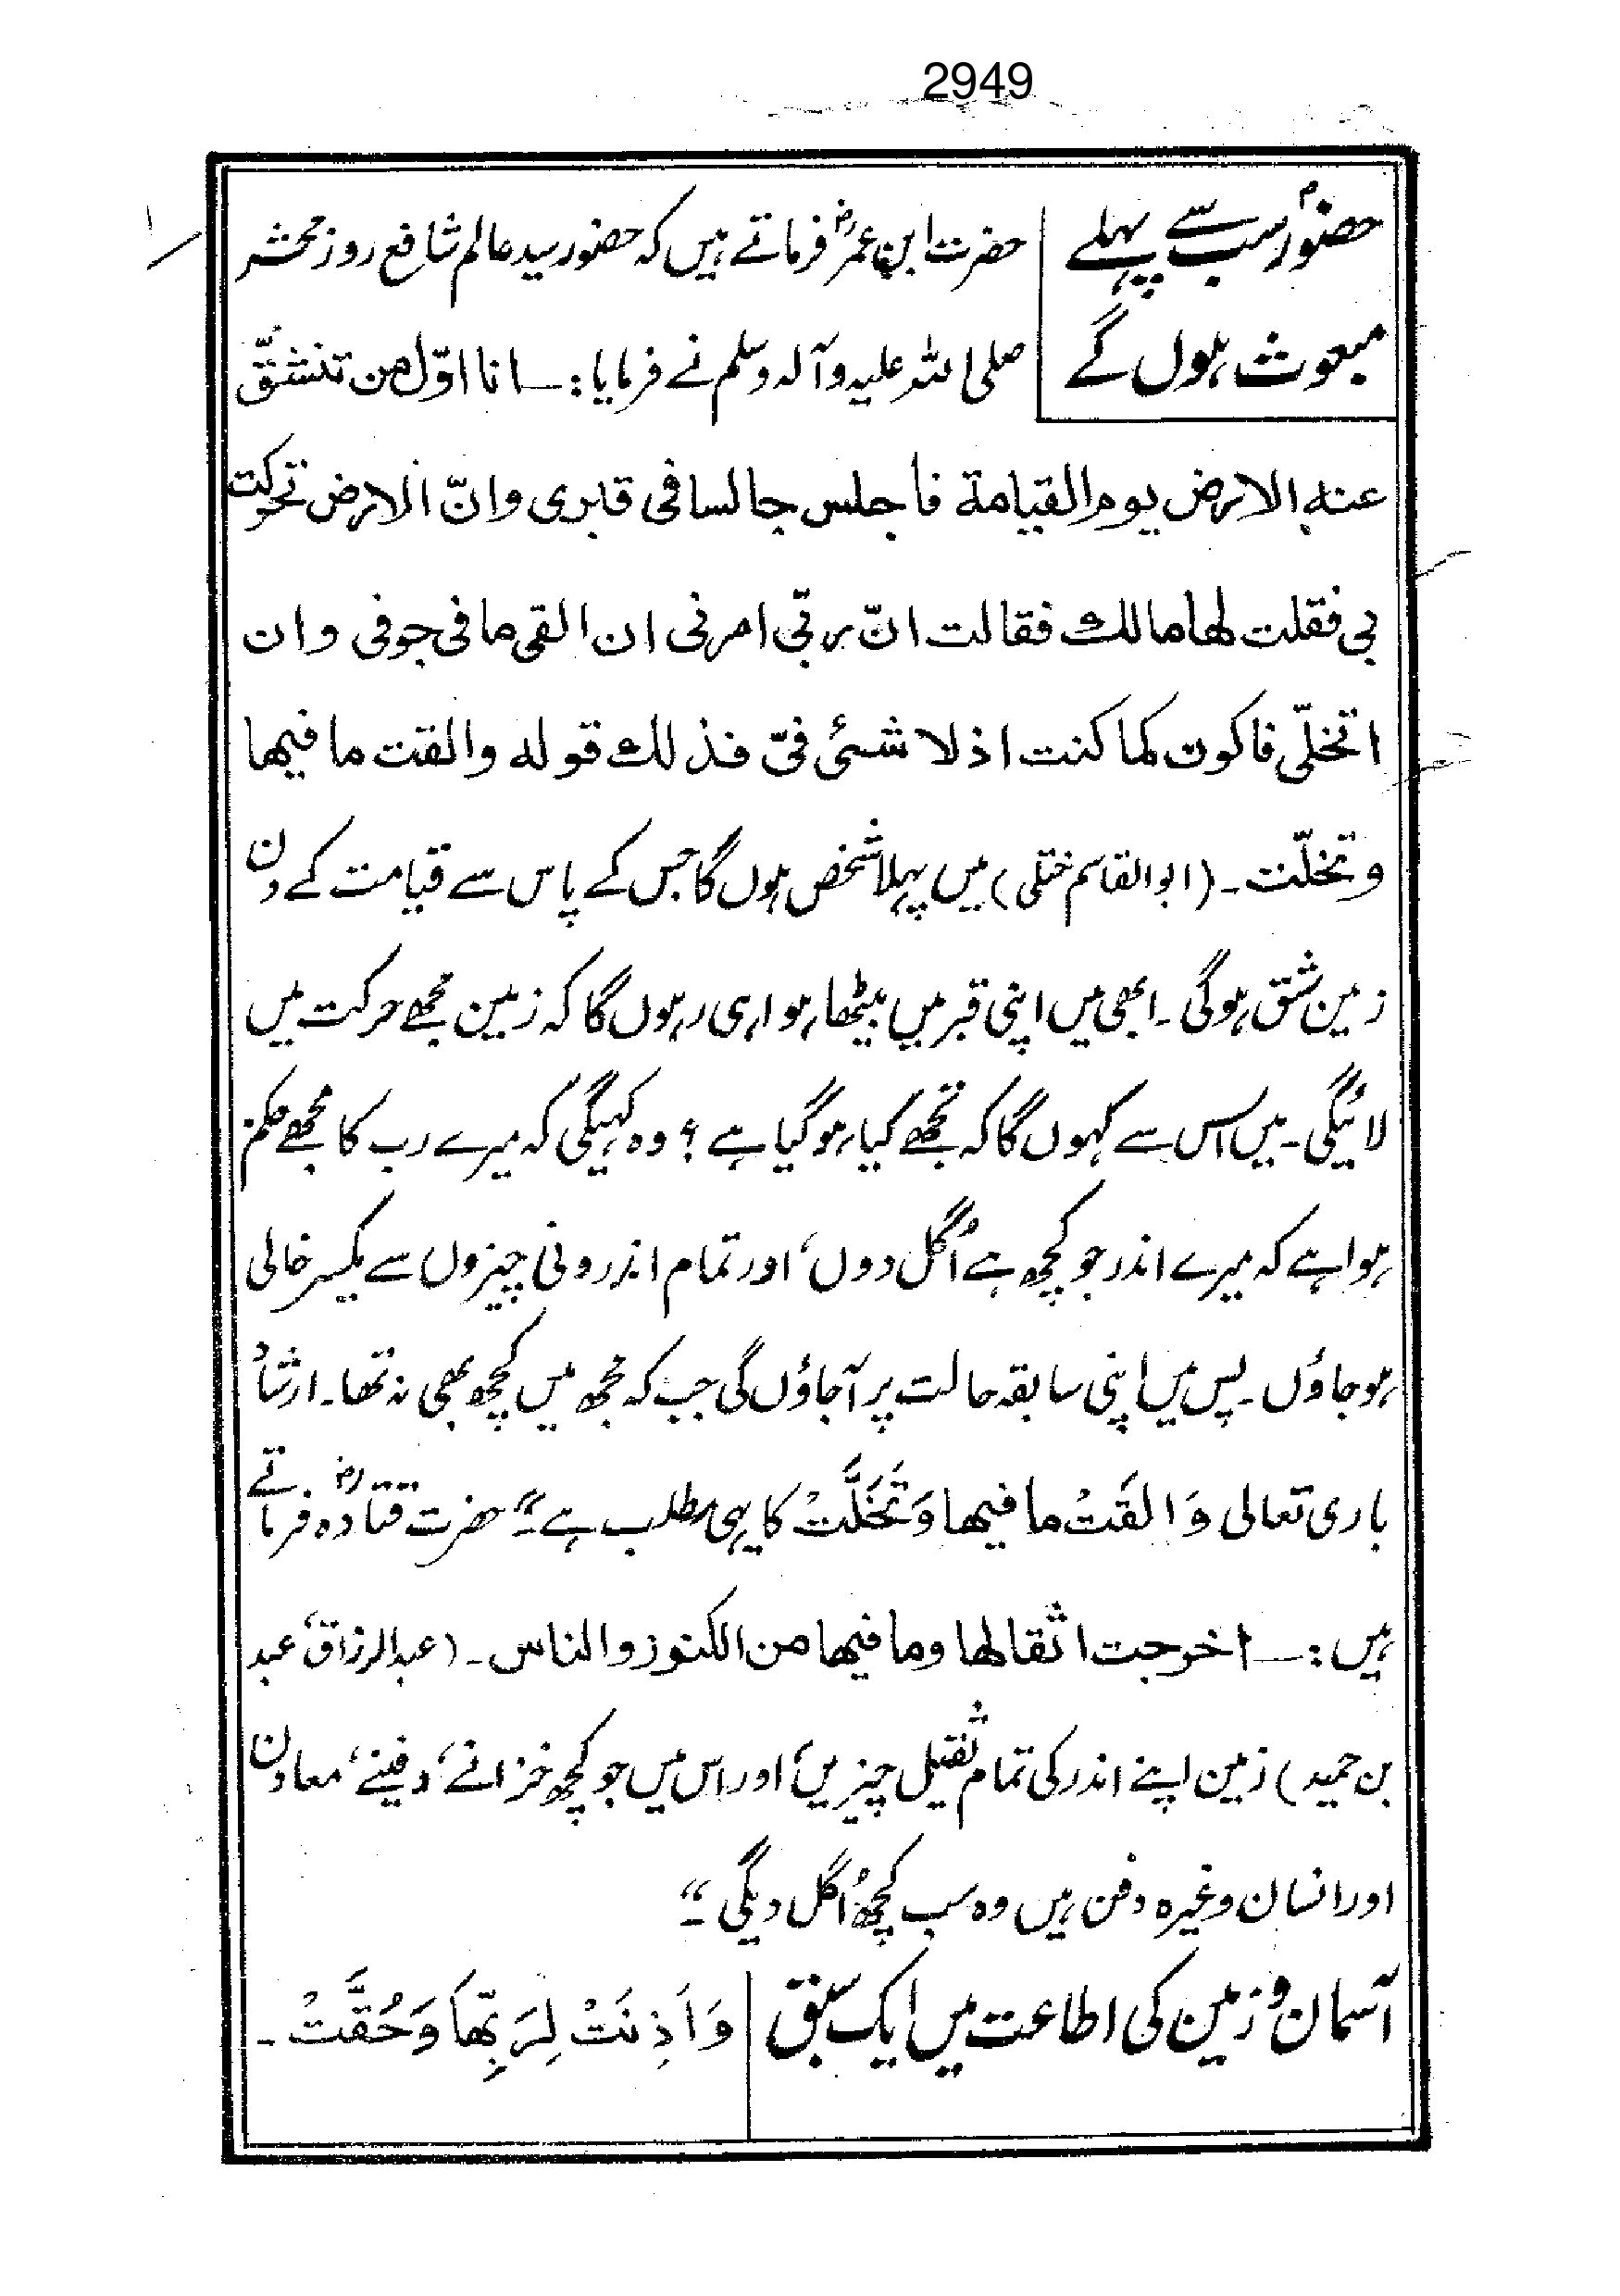 2949
حضورؐ سب سے پہلے
مبعوث ہوں گے
حضرت ابن عمرؓ فرماتے ہیں کہ حضور سید عالم شافع روز محشر
صلی اللہ علیہ وآلہ وسلم نے فرمایا:۔ انا اوّل من تنشقّ
عنه الارض يوم القيامة فاجلس جالسا فی قبری وانّ الارض تحرکت
بی فقلت لها مالك فقالت انّ ربّی امرنی ان القی ما فی جوفی وان
اتخلّی فاکون کما کنت اذ لا شئی فیّ فذلك قوله والقت ما فیها
وتخلّت۔ (ابوالقاسم ختلی) میں پہلا شخص ہوں گا جس کے پاس سے قیامت کے دن
زمین شق ہوگی۔ ابھی میں اپنی قبر میں بیٹھا ہوا ہی رہوں گا کہ زمین مجھے حرکت میں
لائیگی۔ میں اس سے کہوں گا کہ تجھے کیا ہوگیا ہے؟ وہ کہیگی کہ میرے رب کا مجھے حکم
ہوا ہے کہ میرے اندر جو کچھ ہے اُگل دوں، اور تمام اندرونی چیزوں سے یکسر خالی
ہوجاؤں۔ پس میں اپنی سابقہ حالت پر آجاؤں گی جب کہ مجھ میں کچھ بھی نہ تھا۔ ارشاد
باری تعالی وَالقَتْ ما فیها وَتَخَلَّتْ کا یہی مطلب ہے۔“ حضرت قتادہؓ فرماتے
ہیں:۔ اخرجت اثقالها وما فیها من الکنوز والناس۔ (عبدالرزاق، عبد
بن حمید) زمین اپنے اندر کی تمام ثقیل چیزیں، اور اس میں جو کچھ خزانے، دفینے، معادن
اور انسان وغیرہ دفن ہیں وہ سب کچھ اُگل دیگی۔“
آسمان و زمین کی اطاعت میں ایک سبق
وَاَذِنَتْ لِرَبِّهَا وَحُقَّتْ۔